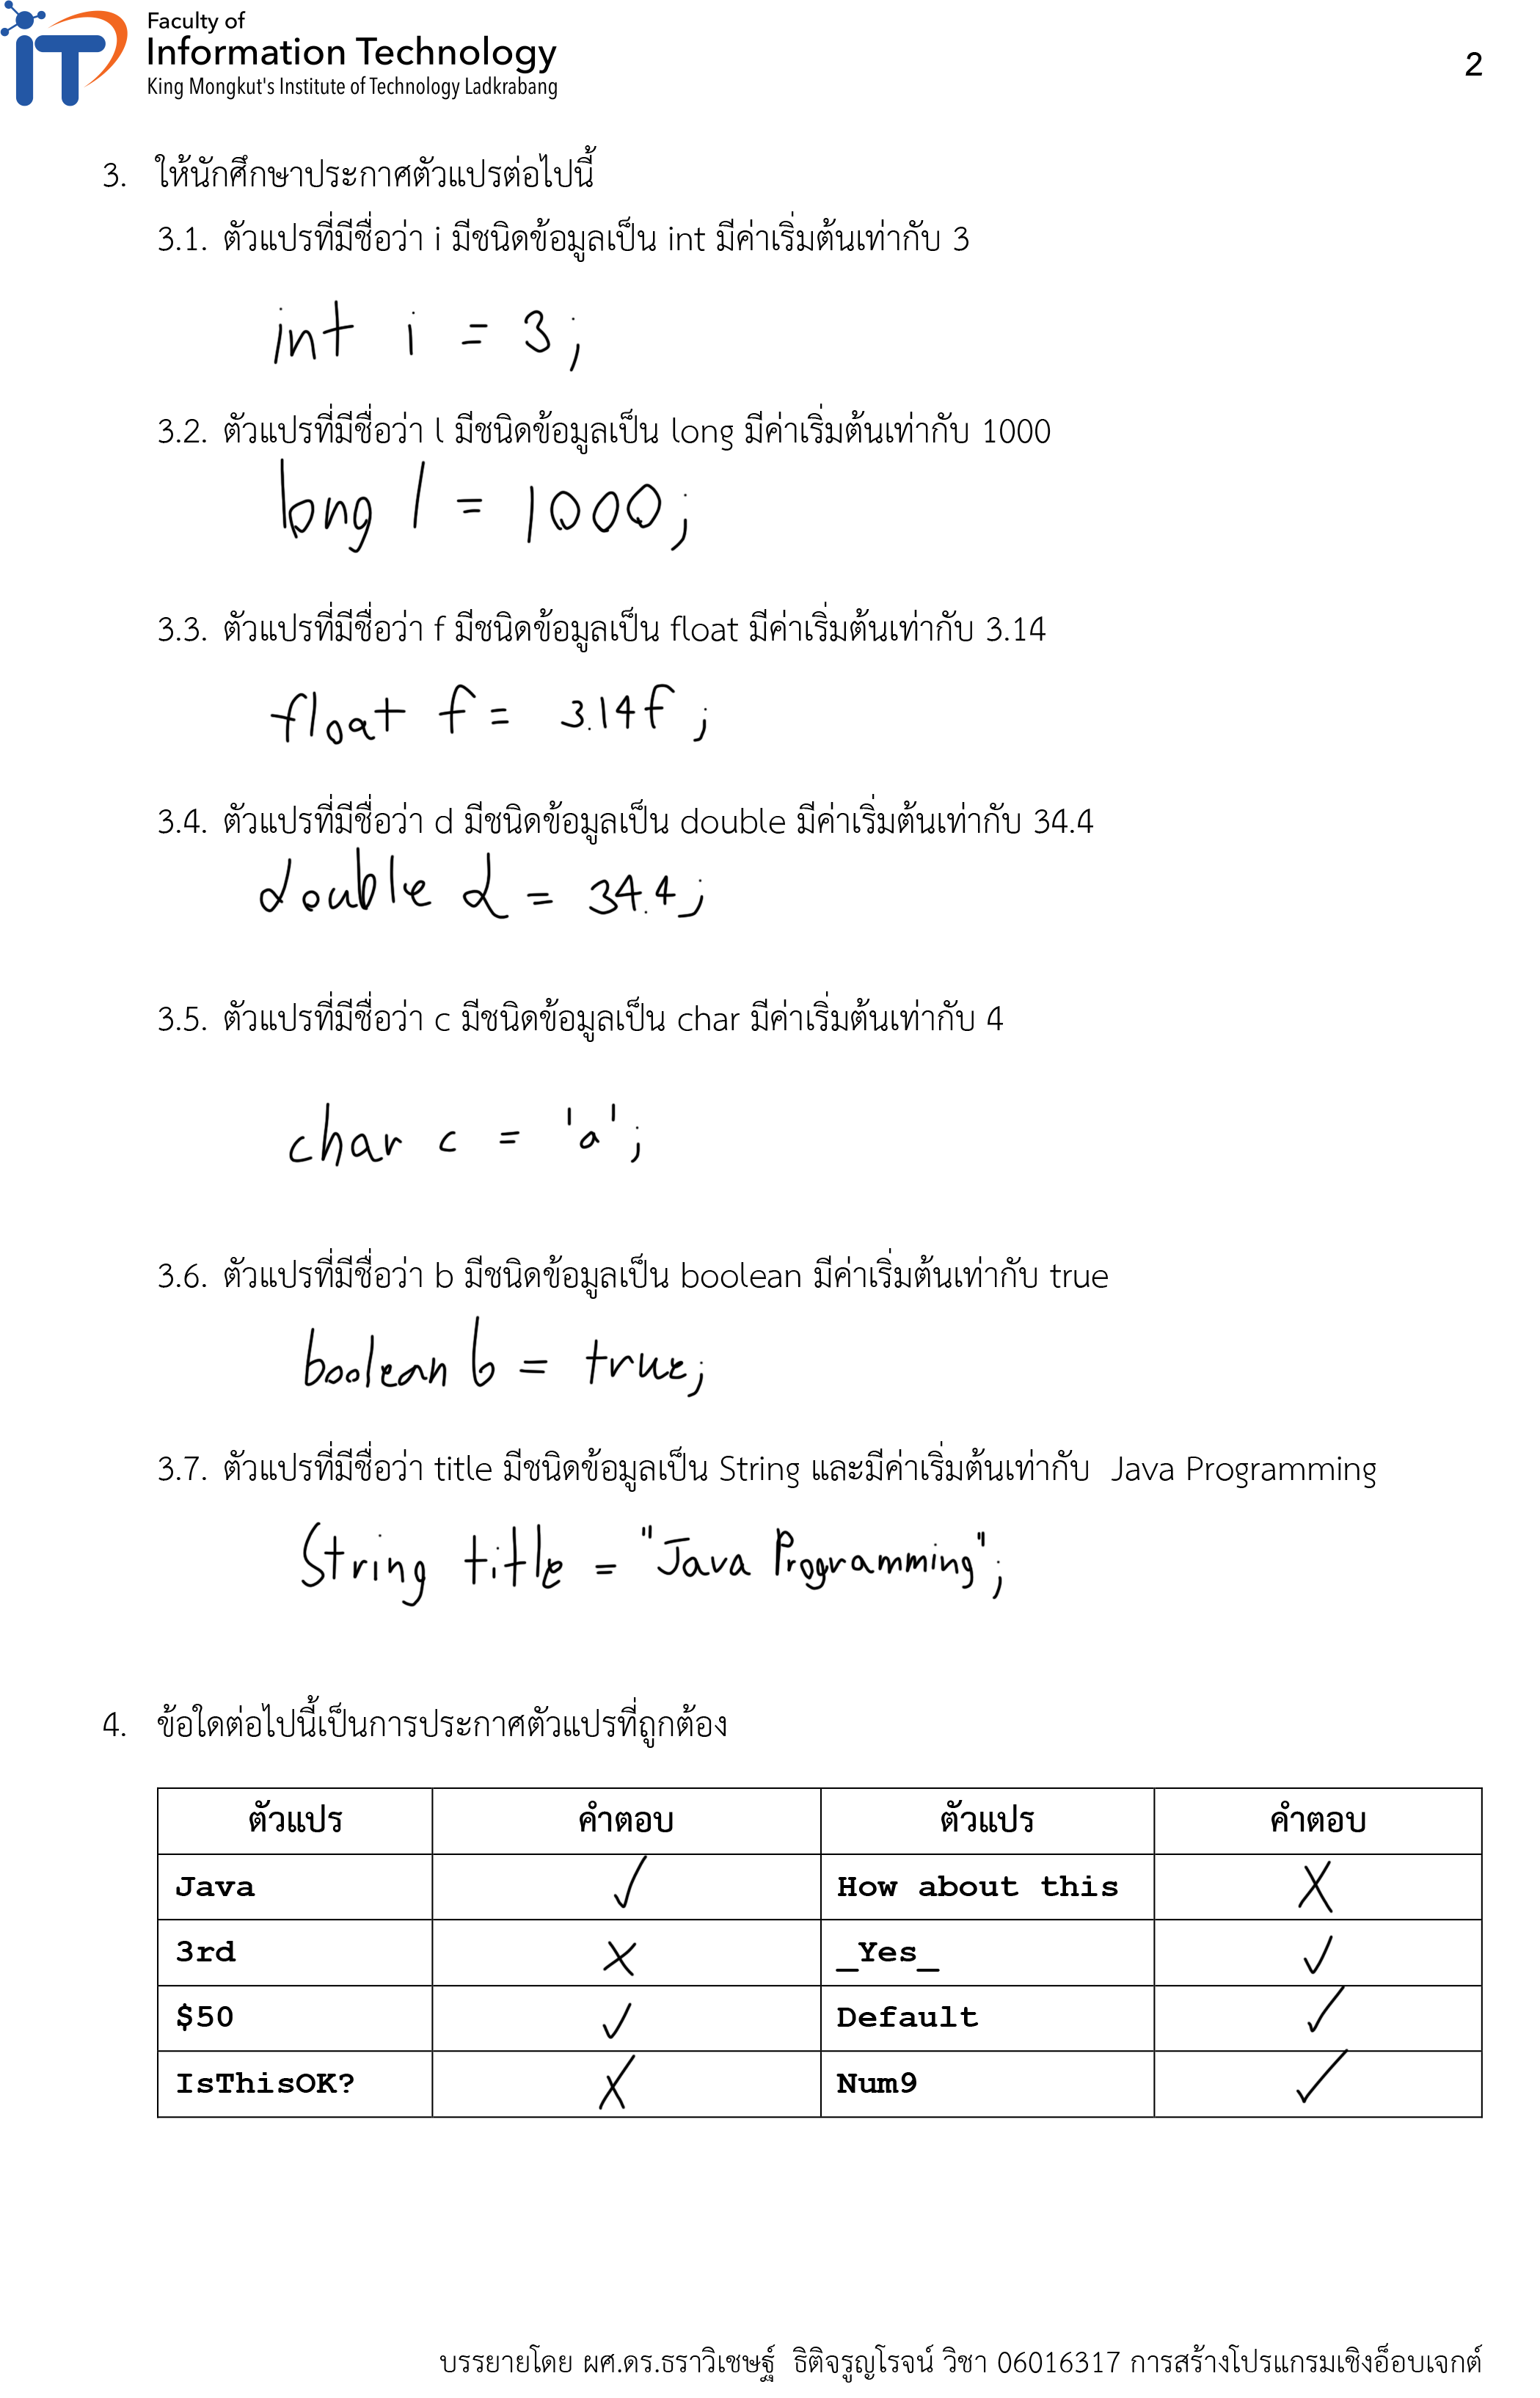 Faculty of
Information Technology
King Mongkut's Institute of Technology Ladkrabang
2
3. ให้นักศึกษาประกาศตัวแปรต่อไปนี้
3.1. ตัวแปรที่มีชื่อว่า i มีชนิดข้อมูลเป็น int มีค่าเริ่มต้นเท่ากับ 3
int i = 3;
3.2. ตัวแปรที่มีชื่อว่า l มีชนิดข้อมูลเป็น long มีค่าเริ่มต้นเท่ากับ 1000
long l = 1000;
3.3. ตัวแปรที่มีชื่อว่า f มีชนิดข้อมูลเป็น float มีค่าเริ่มต้นเท่ากับ 3.14
float f = 3.14f;
3.4. ตัวแปรที่มีชื่อว่า d มีชนิดข้อมูลเป็น double มีค่าเริ่มต้นเท่ากับ 34.4
double d = 34.4;
3.5. ตัวแปรที่มีชื่อว่า c มีชนิดข้อมูลเป็น char มีค่าเริ่มต้นเท่ากับ 4
char c = 'a';
3.6. ตัวแปรที่มีชื่อว่า b มีชนิดข้อมูลเป็น boolean มีค่าเริ่มต้นเท่ากับ true
boolean b = true;
3.7. ตัวแปรที่มีชื่อว่า title มีชนิดข้อมูลเป็น String และมีค่าเริ่มต้นเท่ากับ Java Programming
String title = "Java Programming";
4. ข้อใดต่อไปนี้เป็นการประกาศตัวแปรที่ถูกต้อง
ตัวแปร คำตอบ ตัวแปร คำตอบ
Java ✓ How about this ✗
3rd ✗ _Yes_ ✓
$50 ✓ Default ✓
IsThisOK? ✗ Num9 ✓
บรรยายโดย ผศ.ดร.ธราวิเชษฐ์ ธิติจรูญโรจน์ วิชา 06016317 การสร้างโปรแกรมเชิงอ็อบเจกต์